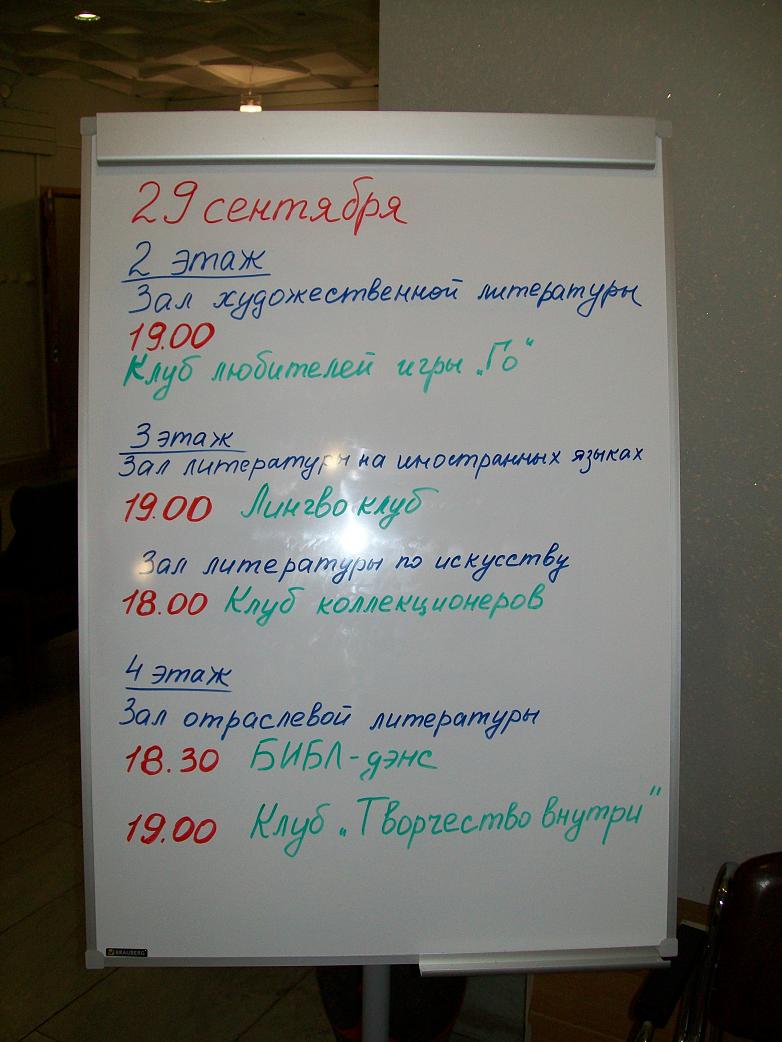 29 сентября
2 этаж
Зал художественной литературы
19.00
Клуб любителей игры „Го“
3 этаж
Зал литературы на иностранных языках
19.00 Лингво клуб
Зал литературы по искусству
18.00 Клуб коллекционеров
4 этаж
Зал отраслевой литературы
18.30 БИБЛ-дэнс
19.00 Клуб „Творчество внутри“
BRAUBERG